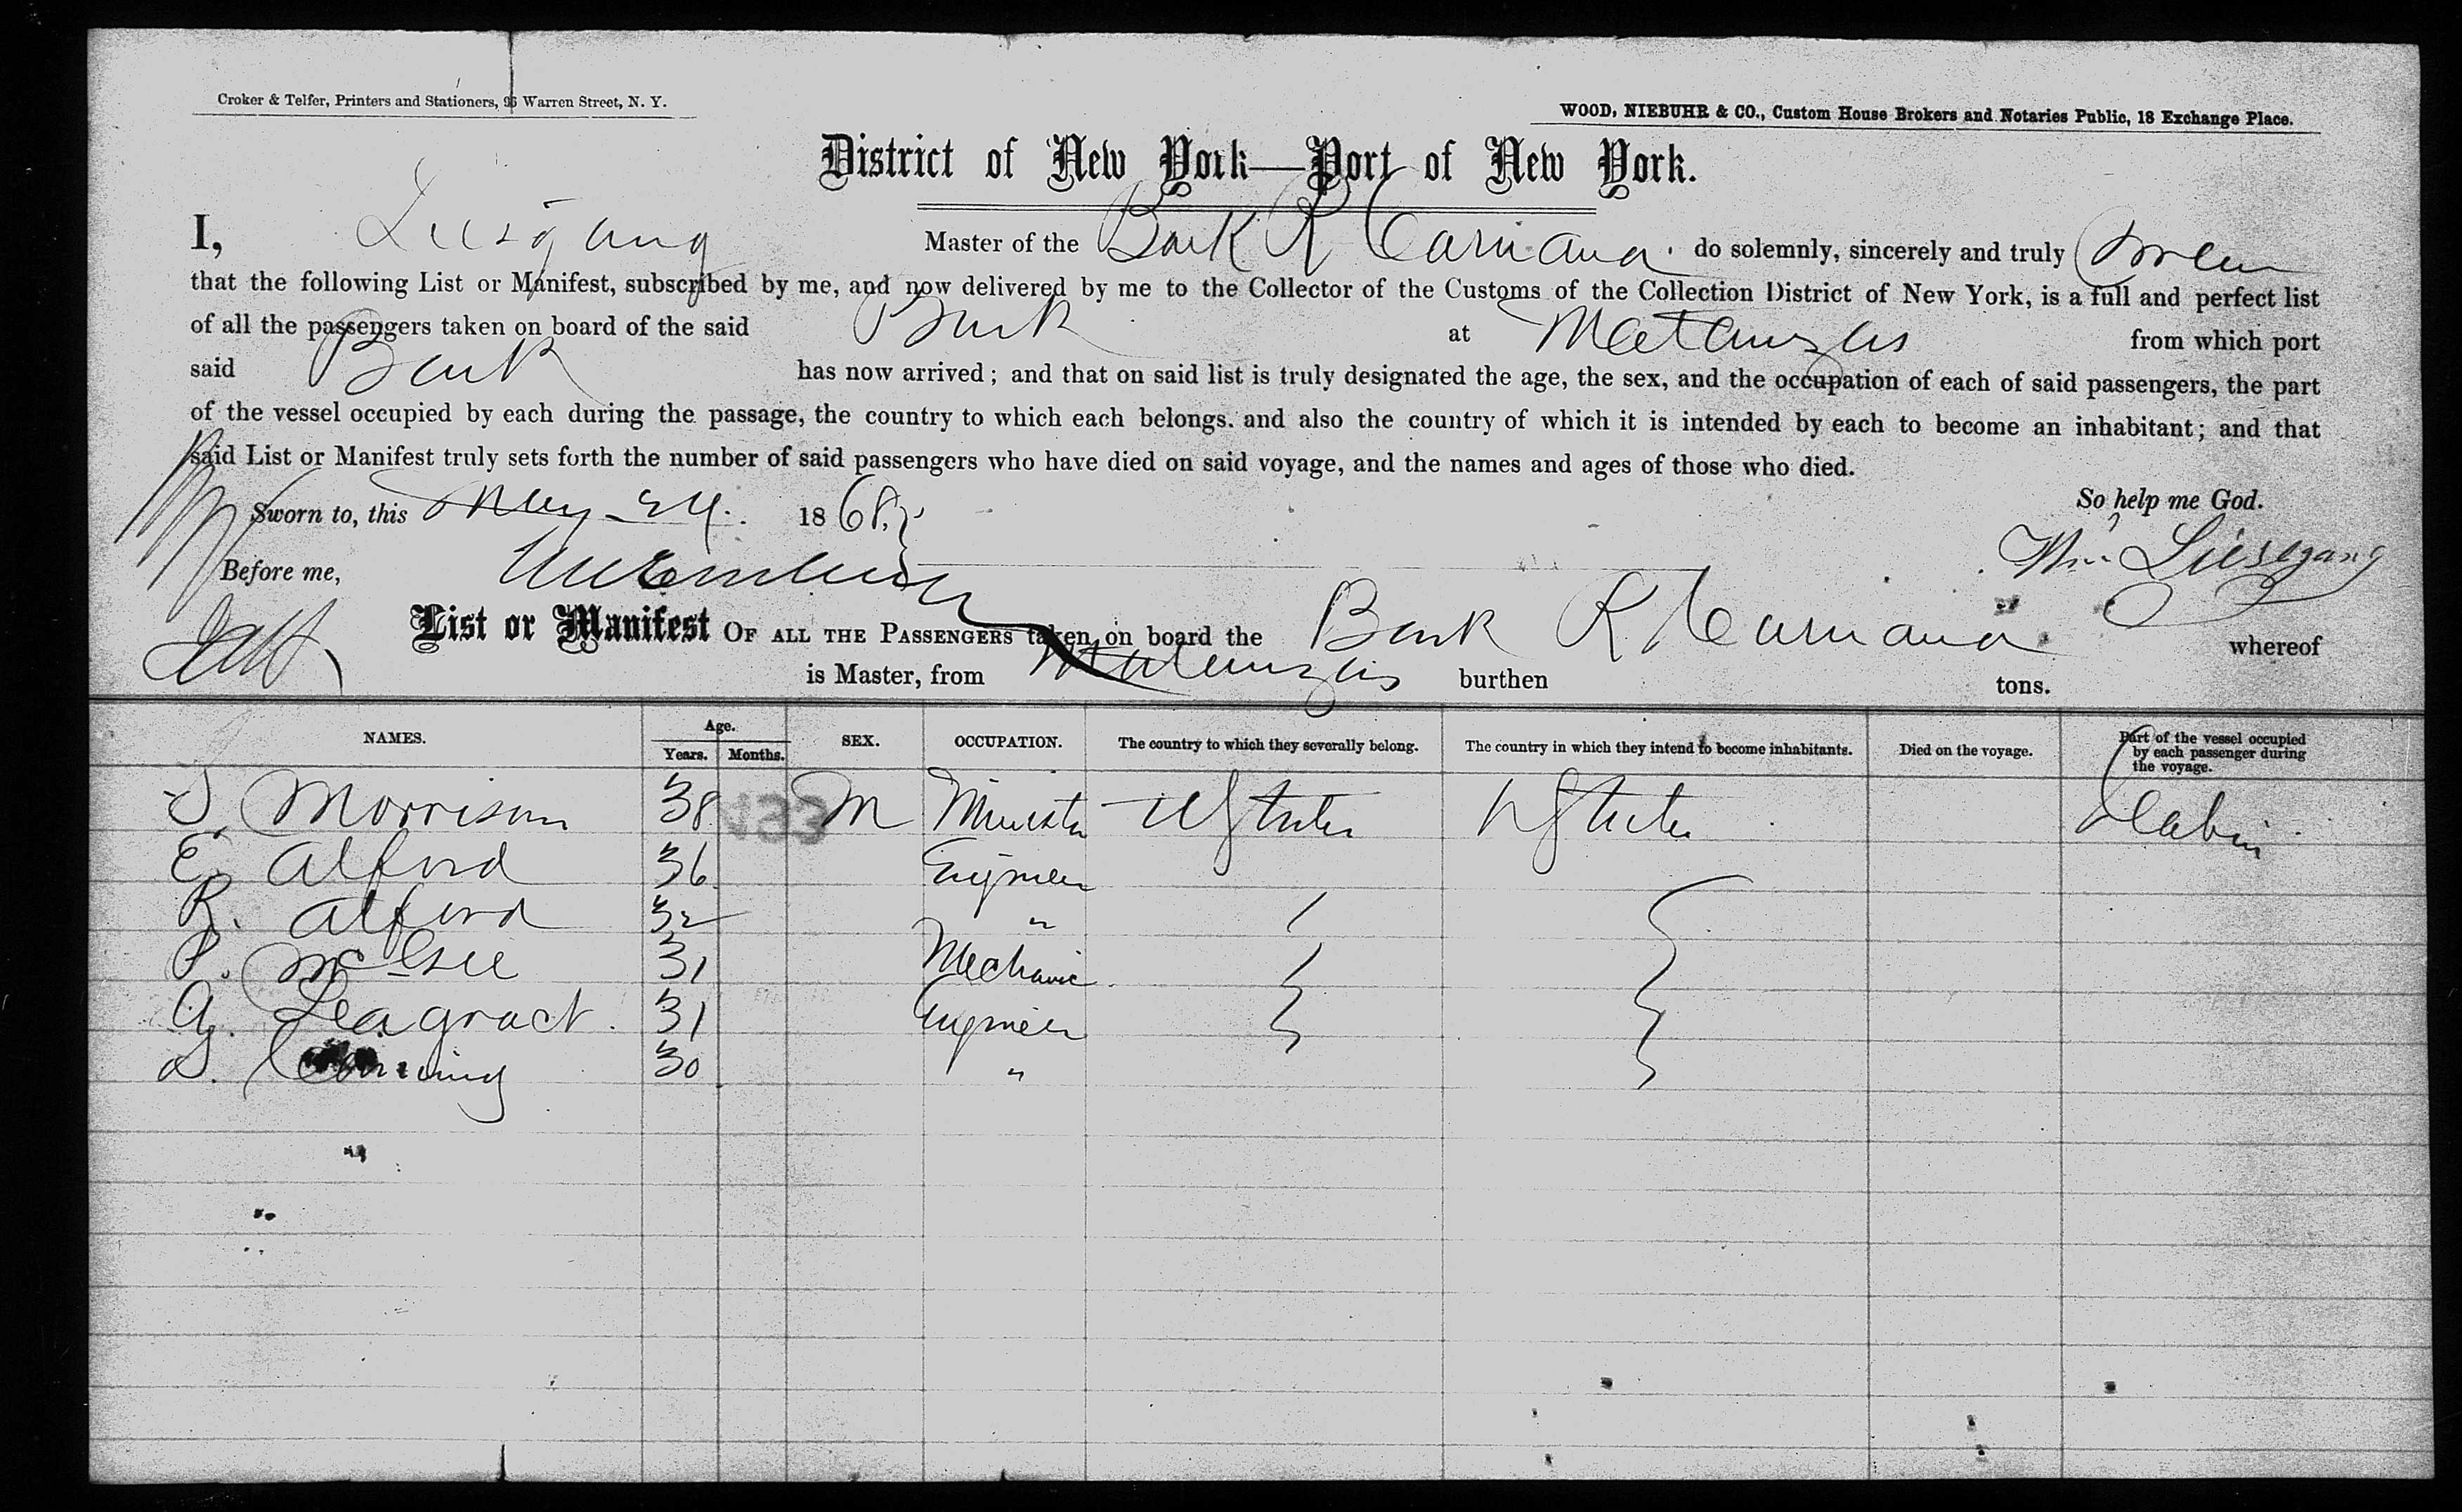 Croker & Telfer, Printers and Stationers, 96 Warren Street, N. Y.
WOOD, NIEBUHR & CO., Custom House Brokers and Notaries Public, 18 Exchange Place.
District of New York—Port of New York.
I, Liesegang Master of the Bark R Carnana do solemnly, sincerely and truly swear
that the following List or Manifest, subscribed by me, and now delivered by me to the Collector of the Customs of the Collection District of New York, is a full and perfect list
of all the passengers taken on board of the said Bark at Matanzas from which port
said Bark has now arrived; and that on said list is truly designated the age, the sex, and the occupation of each of said passengers, the part
of the vessel occupied by each during the passage, the country to which each belongs. and also the country of which it is intended by each to become an inhabitant; and that
said List or Manifest truly sets forth the number of said passengers who have died on said voyage, and the names and ages of those who died.
So help me God.
Sworn to, this May 1868
Wm Liesegang
Before me,
List or Manifest OF ALL THE PASSENGERS taken on board the Bark R Carnana whereof
is Master, from Matanzas burthen tons.
NAMES. Age. Years. Months. SEX. OCCUPATION. The country to which they severally belong. The country in which they intend to become inhabitants. Died on the voyage. Part of the vessel occupied by each passenger during the voyage.
Morrison 38 M Minister U States U States Cabin
E. Alford 36 Engineer
R. Alford 32 "
P. McGee 31 Mechanic
A. Seagract 31 Engineer
30 "